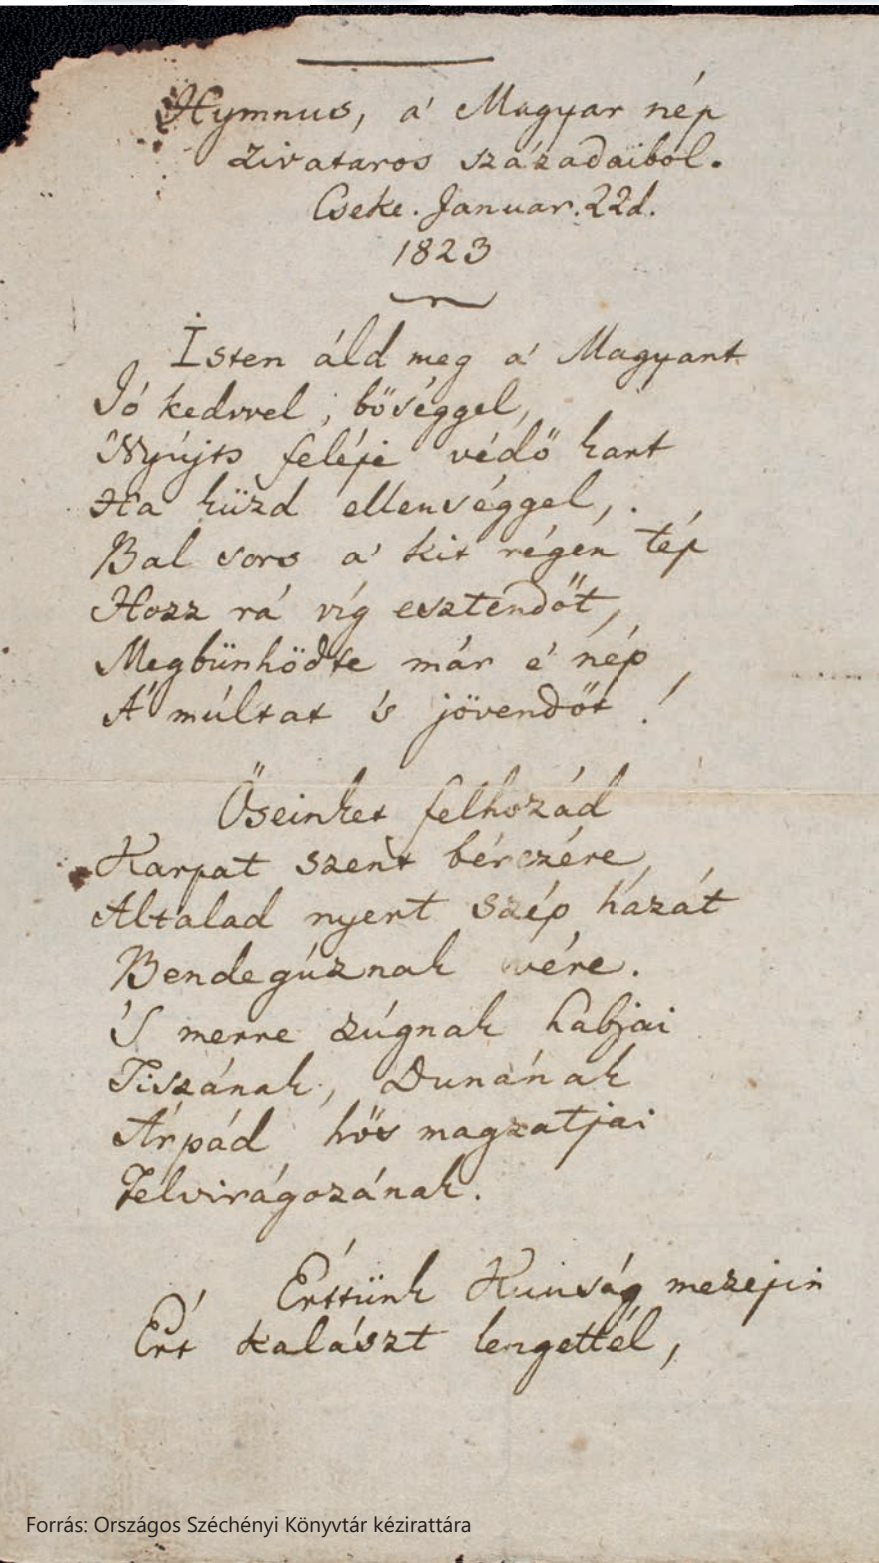 Hymnus, a' Magyar nép
zivataros századaiból.
Cseke. Januar. 22d.
1823
Isten áld meg a' Magyart
Jó kedvvel, bőséggel,
Nyújts feléje védő kart
Ha küzd ellenséggel,
Bal sors a' kit régen tép
Hozz rá víg esztendőt,
Megbünhödte már e' nép
A' múltat 's jövendőt!
Őseinket felhozád
Karpat szent bérczére,
Altalad nyert szép hazát
Bendegúznak vére.
'S merre zúgnak habjai
Tiszának, Dunának
Árpád hős magzatjai
Felvirágozának.
Érttünk Kunság mezején
Ért kalászt lengettél,
Forrás: Országos Széchényi Könyvtár kézirattára